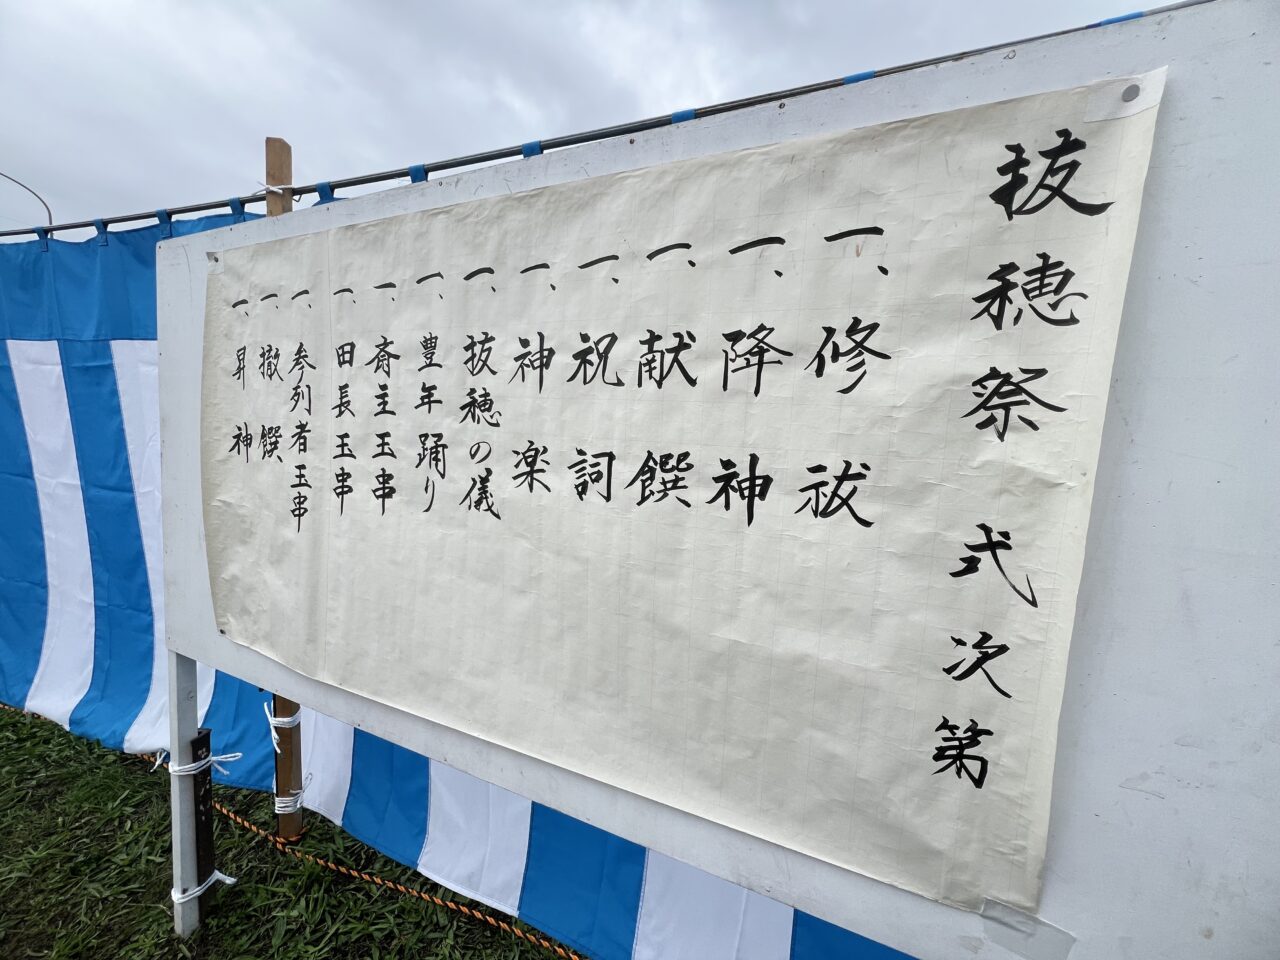 抜穂祭 式次第
一、修祓
一、降神
一、献饌
一、祝詞
一、神楽
一、抜穂の儀
一、豊年踊り
一、斎主玉串
一、田長玉串
一、参列者玉串
一、撤饌
一、昇神